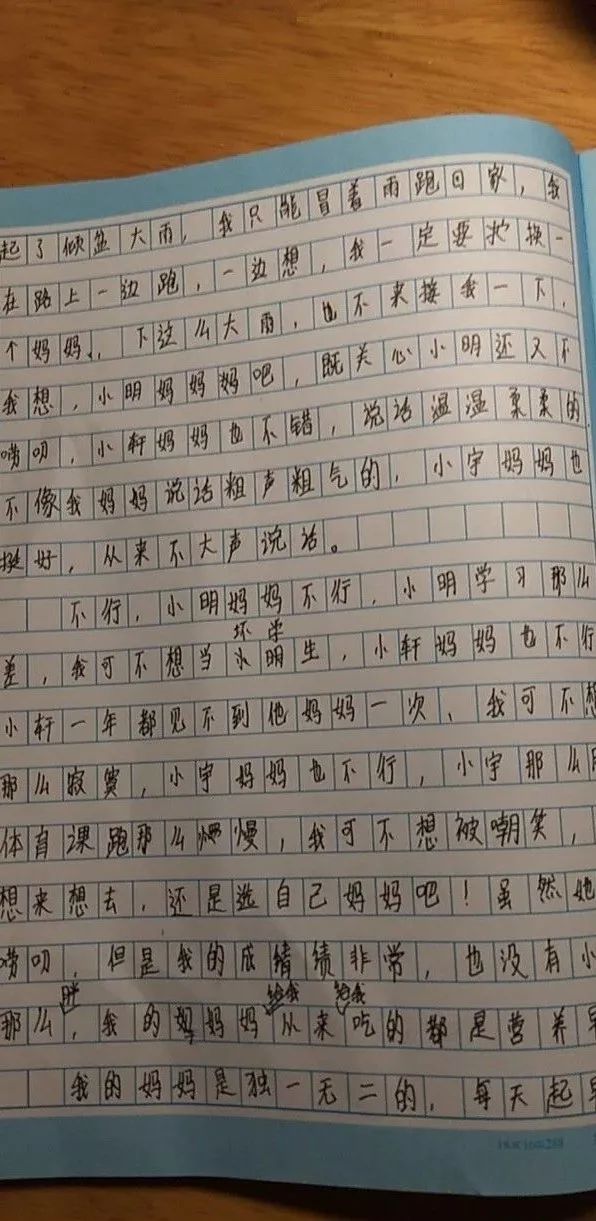 起了倾盆大雨，我只能冒着雨跑回家，我
在路上一边跑，一边想，我一定要换一
个妈妈，下这么大雨，也不来接我一下，
我想，小明妈妈吧，既关心小明还又不
唠叨，小轩妈妈也不错，说话温温柔柔的
不像我妈妈说话粗声粗气的，小宇妈妈也
挺好，从来不大声说话。
不行，小明妈妈不行，小明学习那么
坏学
差，我可不想当生，小轩妈妈也不行
小轩一年都见不到他妈妈一次，我可不想
那么寂寞，小宇妈妈也不行，小宇那么
体育课跑那么慢，我可不想被嘲笑，
想来想去，还是选自己妈妈吧！虽然她
唠叨，但是我的成绩非常，也没有小
胖 给我
那么，我的妈妈从来吃的都是营养
我的妈妈是独一无二的，每天起早